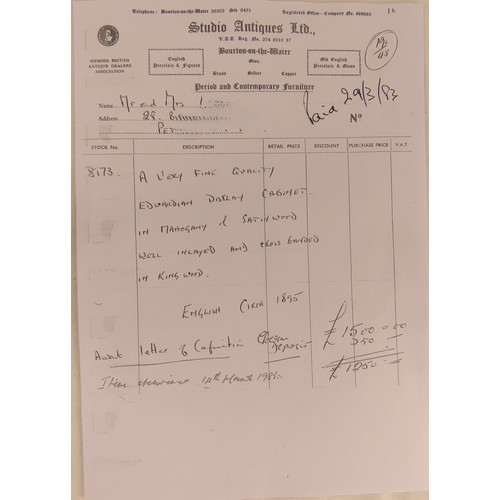 Telephone: Bourton-on-the-Water 20352 Std 0451
Registered Office—Company No.
Studio Antiques Ltd.,
V.A.T. Reg. No. 274 0612 37
Bourton-on-the-Water
MEMBER BRITISH
ANTIQUE DEALERS
ASSOCIATION
English
Porcelain & Figures
Glass,
Brass Silver Copper
Old English
Porcelain & Glass
Period and Contemporary Furniture
Name Mr and Mrs
Paid 29/3/83
Address 28.
No
STOCK No. DESCRIPTION RETAIL PRICE DISCOUNT PURCHASE PRICE V.A.T.
8173. A VERY FINE QUALITY
EDWARDIAN DISPLAY CABINET.
IN MAHOGANY & SATINWOOD
WELL INLAYED AND CROSS BANDED
IN KINGWOOD.
ENGLISH CIRCA 1895
£1500 - 00
Await letter of Deposit 250 —
£1250 —
Item 14th March 1983.